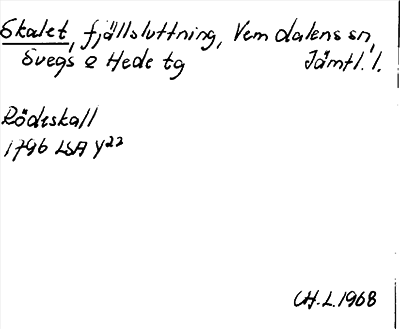 Skalet, fjällsluttning, Vemdalens sn,
Svegs o Hede tg Jämtl. l.
Rödeskall
1796 LSA Y22
CH.L. 1968